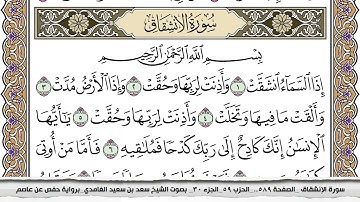 سُورَةُ الِانشِقَاقِ
بِسْمِ اللَّهِ الرَّحْمَٰنِ الرَّحِيمِ
إِذَا السَّمَاءُ انشَقَّتْ ١ وَأَذِنَتْ لِرَبِّهَا وَحُقَّتْ ٢ وَإِذَا الْأَرْضُ مُدَّتْ ٣
وَأَلْقَتْ مَا فِيهَا وَتَخَلَّتْ ٤ وَأَذِنَتْ لِرَبِّهَا وَحُقَّتْ ٥ يَا أَيُّهَا
الْإِنسَانُ إِنَّكَ كَادِحٌ إِلَىٰ رَبِّكَ كَدْحًا فَمُلَاقِيهِ ٦ فَأَمَّا مَنْ أُوتِيَ
سورة الإنشقاق _الصفحة ٥٨٩.. _الحزب ٥٩_الجزء ٣٠_ بصوت الشيخ سعد بن سعيد الغامدي _برواية حفص عن عاصم